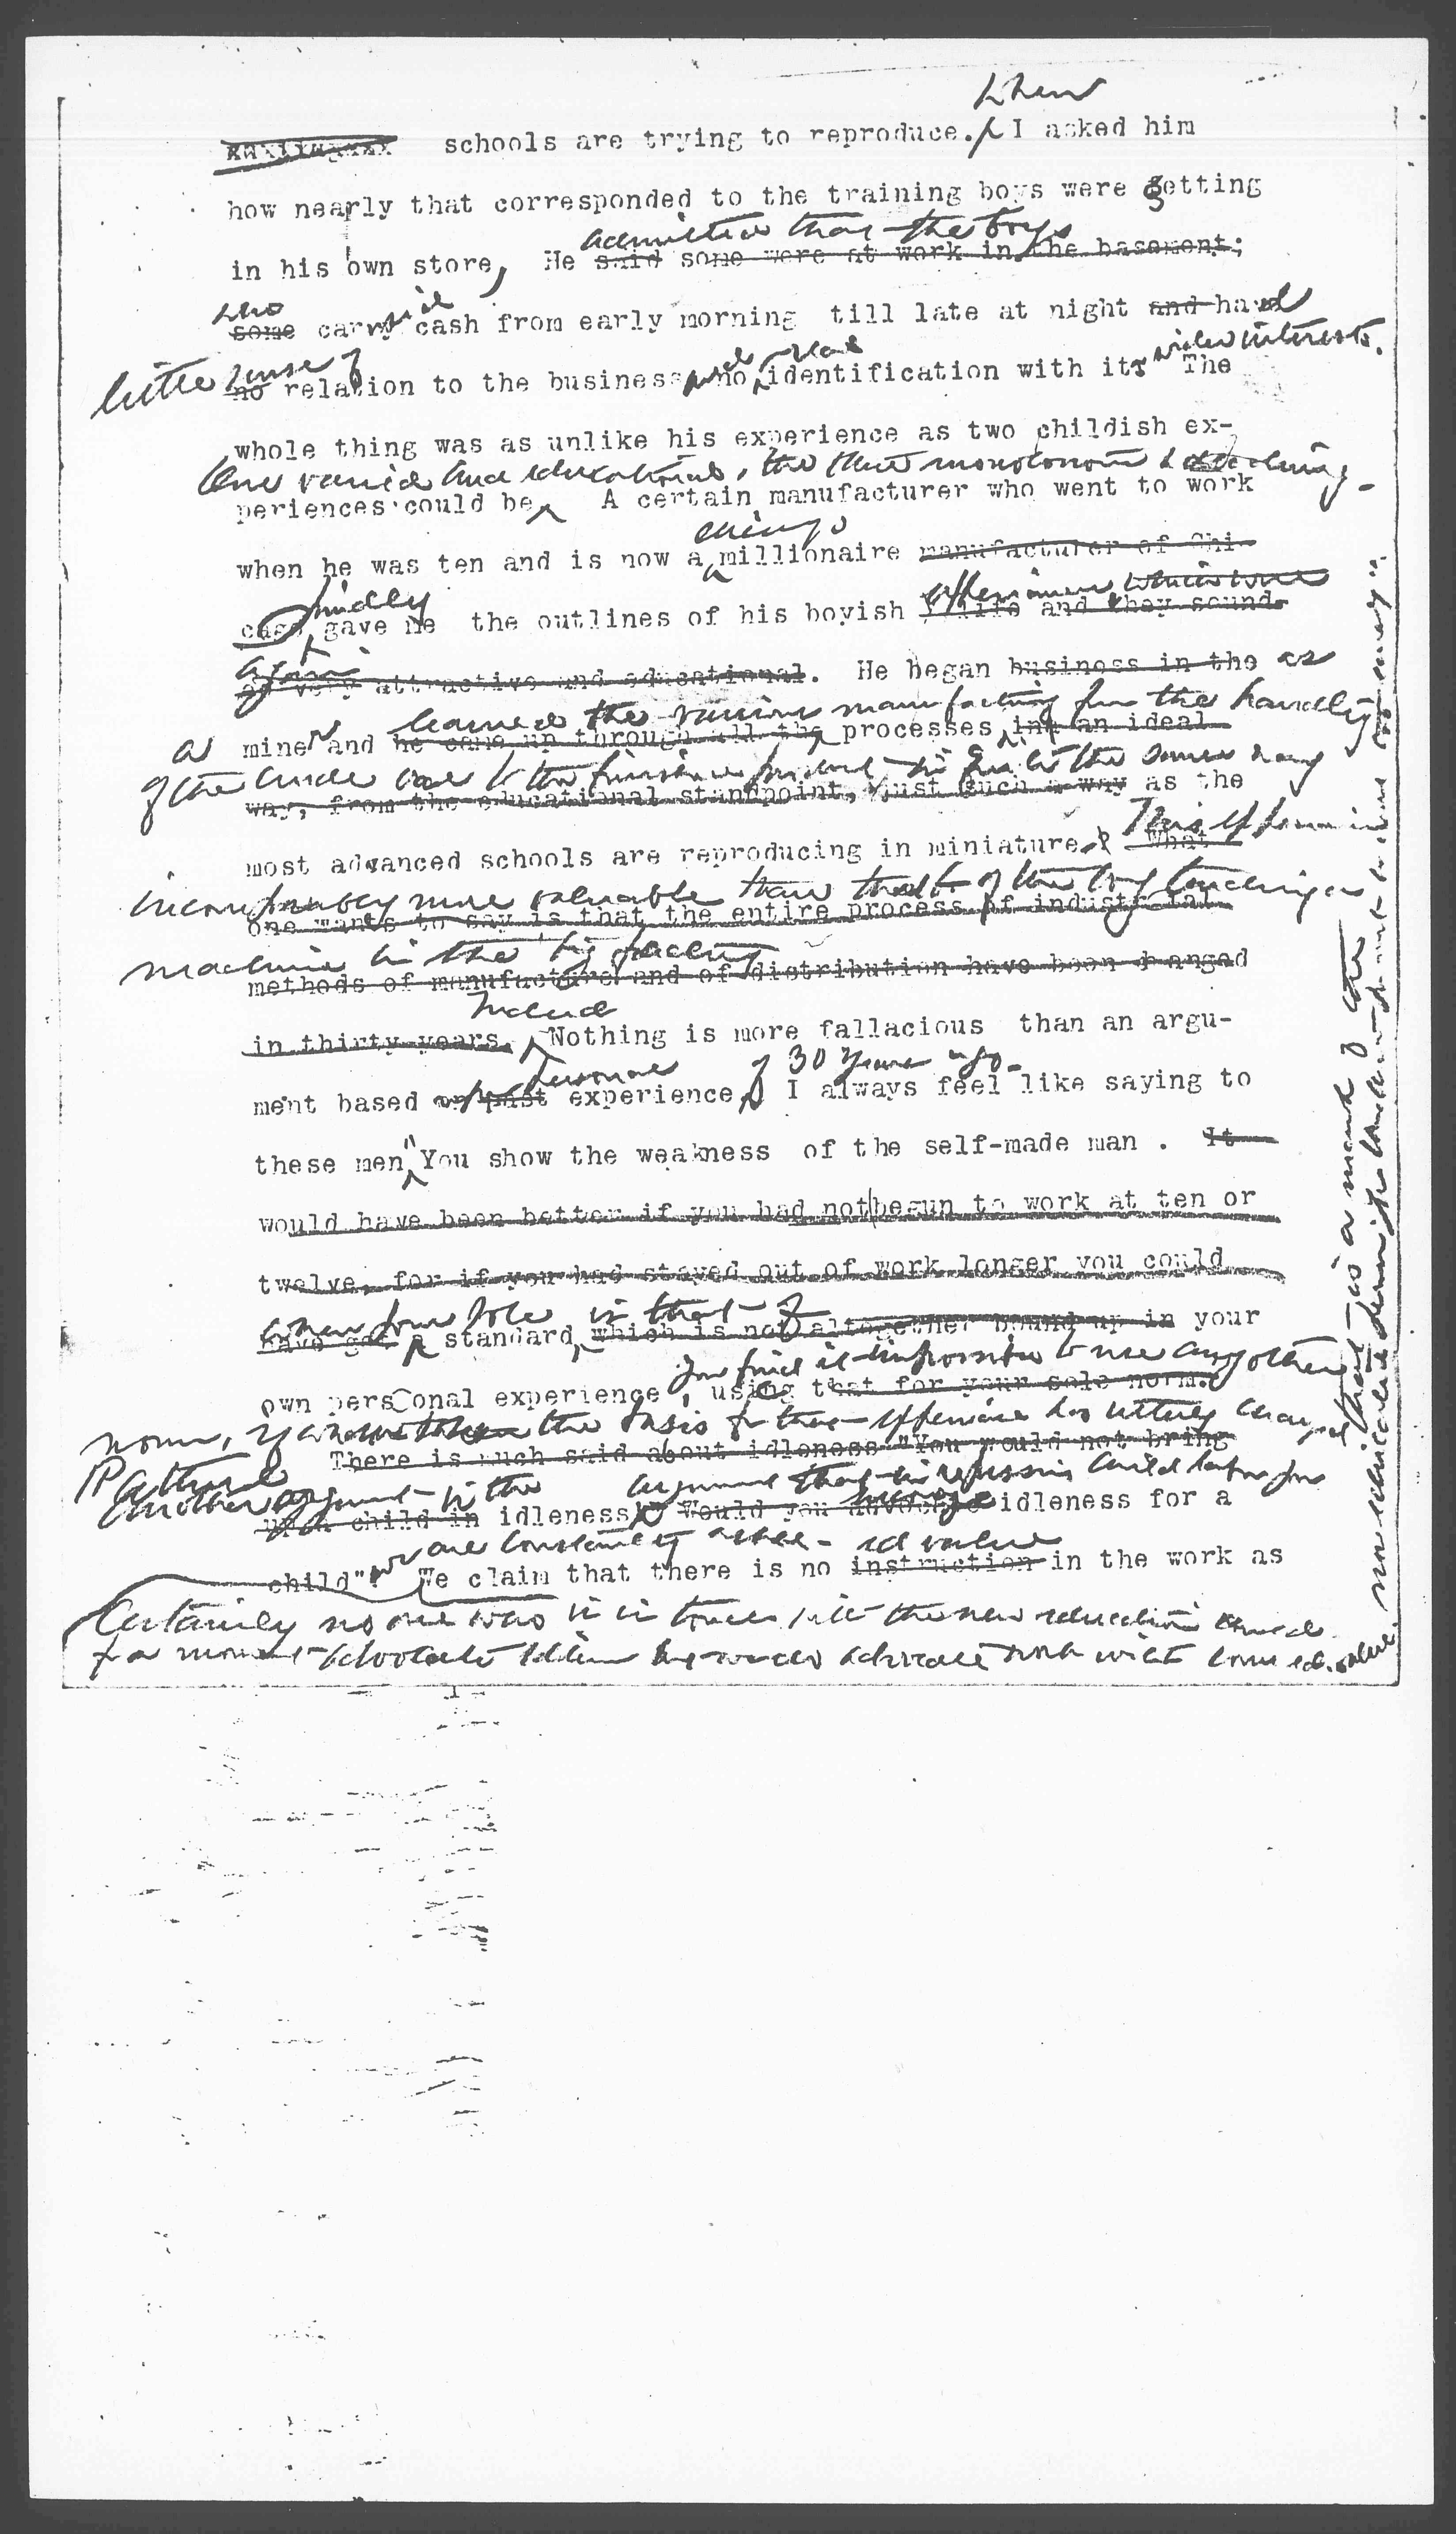 when
schools are trying to reproduce. I asked him
how nearly that corresponded to the training boys were getting
admitted that the boys
in his own store, He said some were at work in the basement;
who
some carry cash from early morning till late at night and had
little sense of real wider interests.
no relation to the business no identification with its The
whole thing was as unlike his experience as two childish ex-
One varied and educational, the other monotonous &
periences could be A certain manufacturer who went to work
when he was ten and is now a millionaire manufacturer of Chi-
kindly experiences which were
cago gave me the outlines of his boyish life and they sound
again
as very attractive and educational. He began business in the as
learned the various manufacturing from the handling
a miner and he came up through all the processes in an ideal
of the crude ore to the finished product in quite the same way
way, from the educational standpoint, just such a way as the
This experience
most advanced schools are reproducing in miniature. What
incomparably more valuable than that of the boy touching a
one wants to say is that the entire process of industrial
machine in the big factory
methods of manufacture and of distribution have been changed
Indeed
in thirty years. Nothing is more fallacious than an argu-
personal of 30 years ago.
ment based on past experience I always feel like saying to
these men "You show the weakness of the self-made man . It
would have been better if you had not begun to work at ten or
twelve, for if you had stayed out of work longer you could
your sole is that of
have got a standard, which is not altogether bound up in your
you find it impossible to use any other
own personal experience, using that for your sole norm.
norm, the basis for that experience has utterly changed
There is much said about idleness "You would not bring
Another argument is the argument that in refusing child labor
up a child in idleness" Would you advocate idleness for a
we are constantly ed value
child"? We claim that there is no instruction in the work as
Certainly no one who is in touch with the new education
for a moment advocate idleness he would advocate work with some ed. value.
that is a mark of the